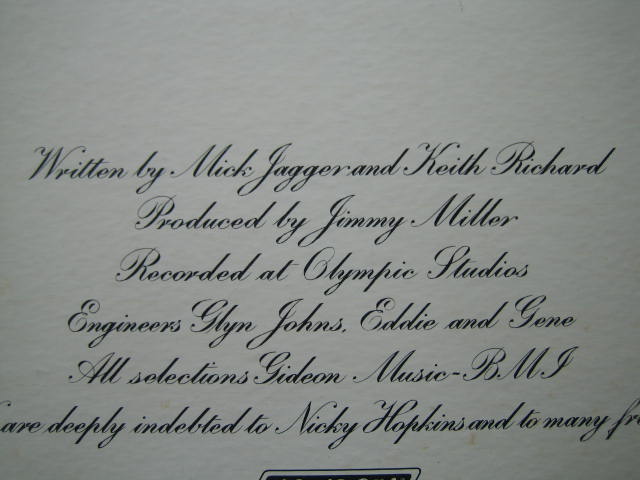 Written by Mick Jagger and Keith Richard
Produced by Jimmy Miller
Recorded at Olympic Studios
Engineers Glyn Johns, Eddie and Gene
All selections Gideon Music-BMI
are deeply indebted to Nicky Hopkins and to many